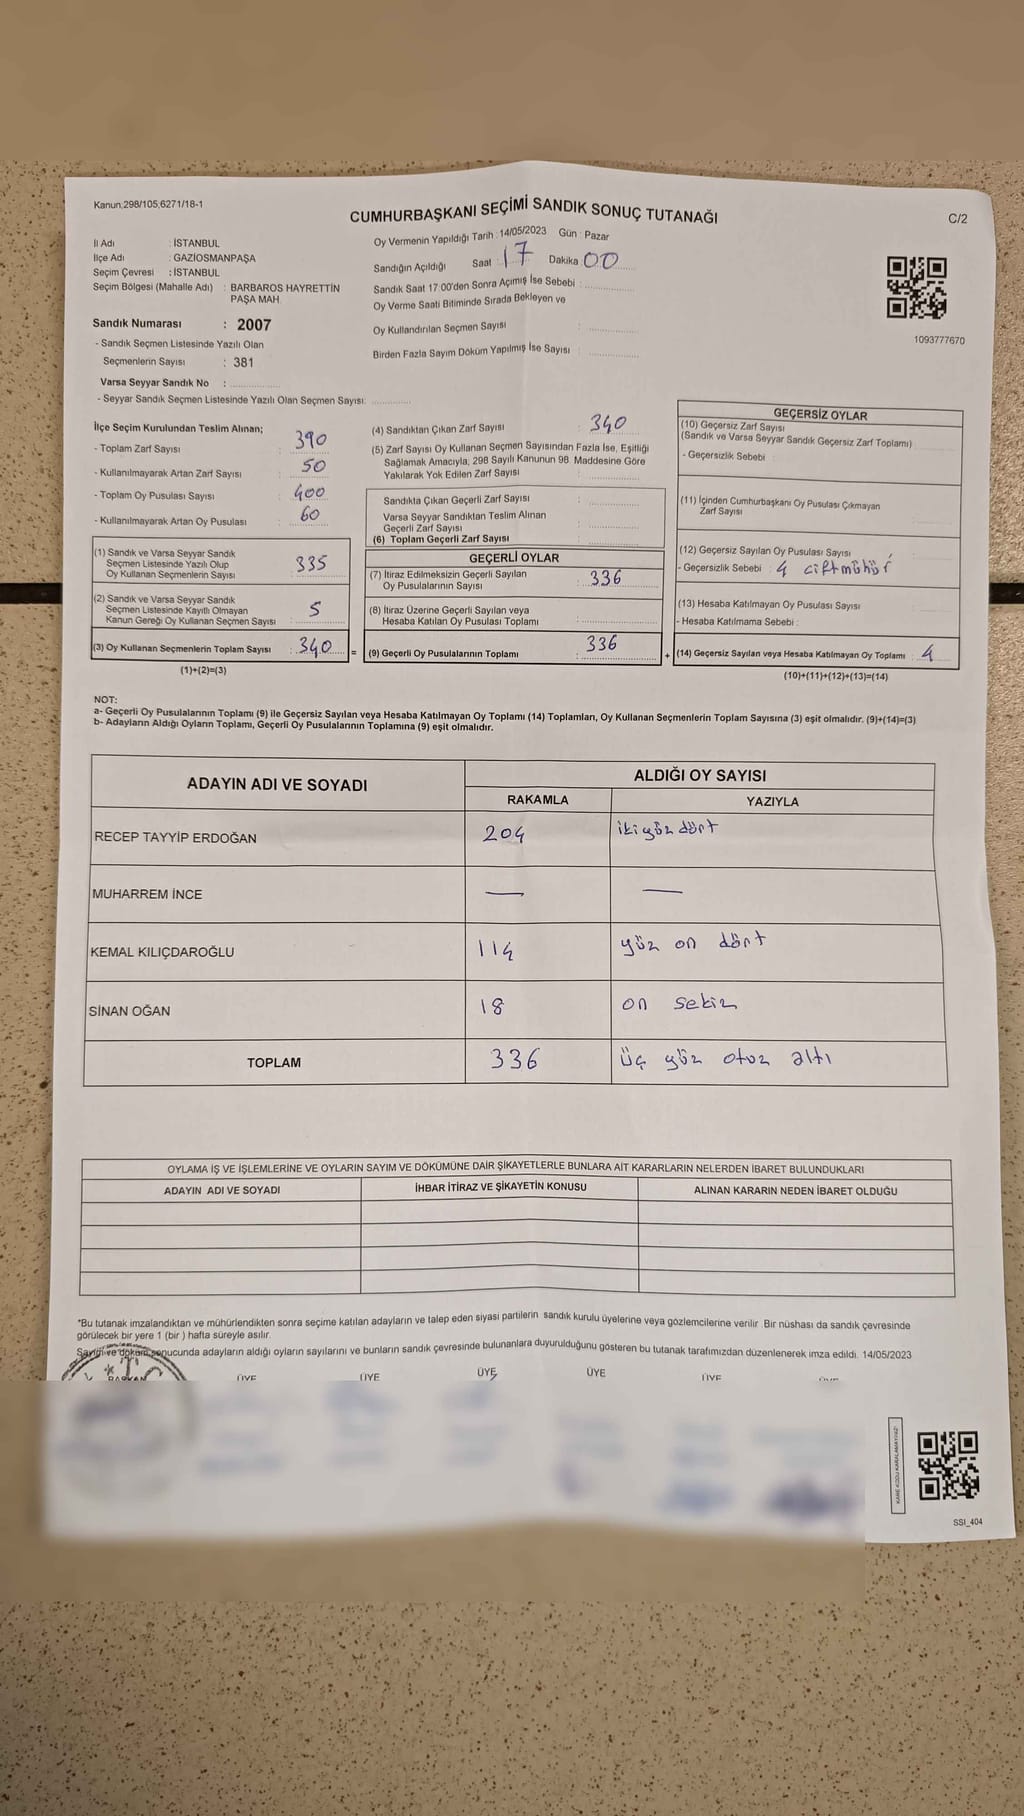 Kanun.298/105,6271/18-1
CUMHURBAŞKANI SEÇİMİ SANDIK SONUÇ TUTANAĞI
C/2
İl Adı : İSTANBUL
İlçe Adı : GAZİOSMANPAŞA
Seçim Çevresi : İSTANBUL
Seçim Bölgesi (Mahalle Adı) : BARBAROS HAYRETTİN
PAŞA MAH.
Sandık Numarası : 2007
- Sandık Seçmen Listesinde Yazılı Olan
Seçmenlerin Sayısı : 381
Varsa Seyyar Sandık No :
- Seyyar Sandık Seçmen Listesinde Yazılı Olan Seçmen Sayısı:
Oy Vermenin Yapıldığı Tarih : 14/05/2023 Gün : Pazar
Sandığın Açıldığı Saat : 17 Dakika : 00
Sandık Saat 17:00'den Sonra Açımış İse Sebebi :
Oy Verme Saati Bitiminde Sırada Bekleyen ve
Oy Kullandırılan Seçmen Sayısı :
Birden Fazla Sayım Döküm Yapılmış İse Sayısı :
1093777670
İlçe Seçim Kurulundan Teslim Alınan;
- Toplam Zarf Sayısı : 390
- Kullanılmayarak Artan Zarf Sayısı : 50
- Toplam Oy Pusulası Sayısı : 400
- Kullanılmayarak Artan Oy Pusulası : 60
(1) Sandık ve Varsa Seyyar Sandık
Seçmen Listesinde Yazılı Olup
Oy Kullanan Seçmenlerin Sayısı : 335
(2) Sandık ve Varsa Seyyar Sandık
Seçmen Listesinde Kayıtlı Olmayan
Kanun Gereği Oy Kullanan Seçmen Sayısı : 5
(3) Oy Kullanan Seçmenlerin Toplam Sayısı : 340 =
(1)+(2)=(3)
(4) Sandıktan Çıkan Zarf Sayısı : 340
(5) Zarf Sayısı Oy Kullanan Seçmen Sayısından Fazla İse, Eşitliği
Sağlamak Amacıyla, 298 Sayılı Kanunun 98. Maddesine Göre
Yakılarak Yok Edilen Zarf Sayısı :
Sandıkta Çıkan Geçerli Zarf Sayısı :
Varsa Seyyar Sandıktan Teslim Alınan
Geçerli Zarf Sayısı :
(6) Toplam Geçerli Zarf Sayısı :
GEÇERLİ OYLAR
(7) İtiraz Edilmeksizin Geçerli Sayılan
Oy Pusulalarının Sayısı : 336
(8) İtiraz Üzerine Geçerli Sayılan veya
Hesaba Katılan Oy Pusulası Toplamı :
(9) Geçerli Oy Pusulalarının Toplamı : 336 +
GEÇERSİZ OYLAR
(10) Geçersiz Zarf Sayısı :
(Sandık ve Varsa Seyyar Sandık Geçersiz Zarf Toplamı)
- Geçersizlik Sebebi :
(11) İçinden Cumhurbaşkanı Oy Pusulası Çıkmayan
Zarf Sayısı :
(12) Geçersiz Sayılan Oy Pusulası Sayısı :
- Geçersizlik Sebebi : 4 çift mühür
(13) Hesaba Katılmayan Oy Pusulası Sayısı :
- Hesaba Katılmama Sebebi :
(14) Geçersiz Sayılan veya Hesaba Katılmayan Oy Toplamı : 4
(10)+(11)+(12)+(13)=(14)
NOT:
a- Geçerli Oy Pusulalarının Toplamı (9) ile Geçersiz Sayılan veya Hesaba Katılmayan Oy Toplamı (14) Toplamları, Oy Kullanan Seçmenlerin Toplam Sayısına (3) eşit olmalıdır. (9)+(14)=(3)
b- Adayların Aldığı Oyların Toplamı, Geçerli Oy Pusulalarının Toplamına (9) eşit olmalıdır.
ADAYIN ADI VE SOYADI
ALDIĞI OY SAYISI
RAKAMLA YAZIYLA
RECEP TAYYİP ERDOĞAN 204 iki yüz dört
MUHARREM İNCE — —
KEMAL KILIÇDAROĞLU 114 yüz on dört
SİNAN OĞAN 18 on sekiz
TOPLAM 336 üç yüz otuz altı
OYLAMA İŞ VE İŞLEMLERİNE VE OYLARIN SAYIM VE DÖKÜMÜNE DAİR ŞİKAYETLERLE BUNLARA AİT KARARLARIN NELERDEN İBARET BULUNDUKLARI
ADAYIN ADI VE SOYADI İHBAR İTİRAZ VE ŞİKAYETİN KONUSU ALINAN KARARIN NEDEN İBARET OLDUĞU
*Bu tutanak imzalandıktan ve mühürlendikten sonra seçime katılan adayların ve talep eden siyasi partilerin sandık kurulu üyelerine veya gözlemcilerine verilir. Bir nüshası da sandık çevresinde
görülecek bir yere 1 (bir ) hafta süreyle asılır.
Sayım ve döküm sonucunda adayların aldığı oyların sayılarını ve bunların sandık çevresinde bulunanlara duyurulduğunu gösteren bu tutanak tarafımızdan düzenlenerek imza edildi. 14/05/2023
BAŞKAN ÜYE ÜYE ÜYE ÜYE ÜYE ÜYE
KARE KODU KARALAMAYINIZ!
SSI_404